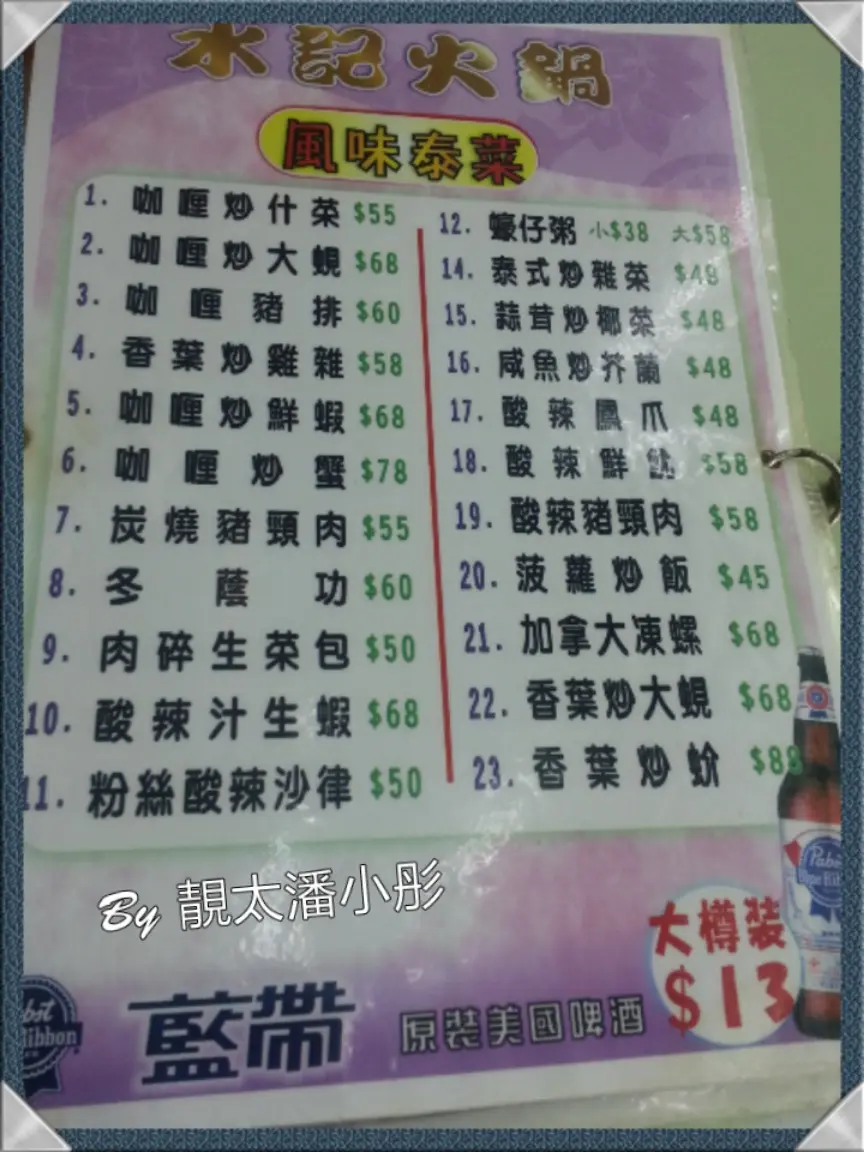 水記火鍋
風味泰菜
1. 咖喱炒什菜 $55
2. 咖喱炒大蜆 $68
3. 咖喱豬排 $60
4. 香葉炒雞雜 $58
5. 咖喱炒鮮蝦 $68
6. 咖喱炒蟹 $78
7. 炭燒豬頸肉 $55
8. 冬蔭功 $60
9. 肉碎生菜包 $50
10. 酸辣汁生蝦 $68
11. 粉絲酸辣沙律 $50
12. 蠔仔粥 小$38 大$58
14. 泰式炒雜菜 $48
15. 蒜茸炒椰菜 $48
16. 咸魚炒芥蘭 $48
17. 酸辣鳳爪 $48
18. 酸辣鮮魷 $58
19. 酸辣豬頸肉 $58
20. 菠蘿炒飯 $45
21. 加拿大凍螺 $68
22. 香葉炒大蜆 $68
23. 香葉炒蚧 $88
By 靚太潘小彤
大樽裝
$13
藍帶
原裝美國啤酒